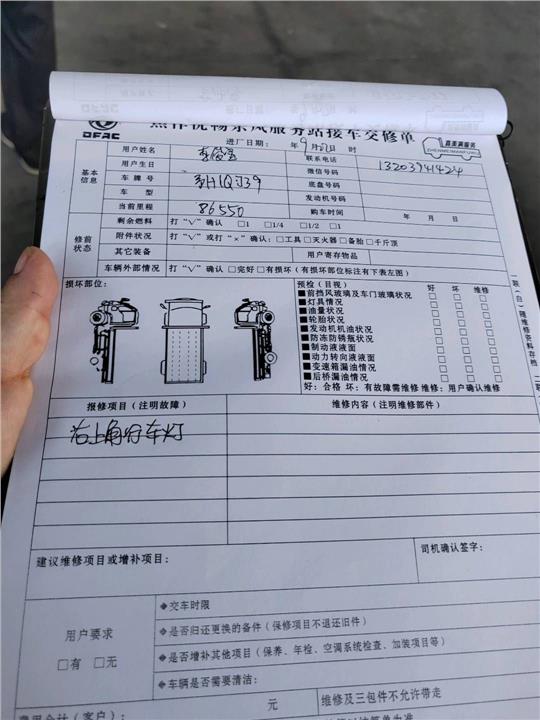 DFAC
焦作优畅东风服务站接车交修单
嘉美满服务
ZHENMEIMANFUWU
进厂日期： 年 9 月 日
基本信息
用户姓名
联系电话 13203941424
用户生日 微信号码
车牌号 底盘号码
车型 发动机号码
当前里程 86550 购车时间 年 月 日
修前状态
剩余燃料 打“√”确认 □1 □1/4 □1/2 □1
附件状况 打“√”或打“×”确认：□工具□灭火器□备胎□千斤顶
其它装备 用户寄存物品
车辆外部情况 打“√”确认 □完好□有损坏（有损坏部位标注有下表左图）
损坏部位：
预检（目视） 好 坏 维修
■前挡风玻璃及车门玻璃状况 □ □ □
■灯具情况 □ □ □
■油量状况 □ □ □
■轮胎状况 □ □ □
■发动机机油状况 □ □ □
■防冻防锈瓶状况 □ □ □
■制动液液面 □ □ □
■动力转向液液面 □ □ □
■变速箱漏油情况 □ □ □
■后桥漏油情况 □ □ □
好：合格 坏：有故障需维修 维修：用户确认维修
一联（白）随维修资料存档
二联
报修项目（注明故障） 维修内容（注明维修部件）
右上角行车灯
建议维修项目或增补项目：
司机确认签字：
用户要求
□有 □无
◆交车时限
◆是否归还更换的备件（保修项目不退还旧件）
◆是否增补其他项目（保养、年检、空调系统检查、加装项目等）
◆车辆是否需要清洁：
元 维修及三包件不允许带走
费用合计（客户）：